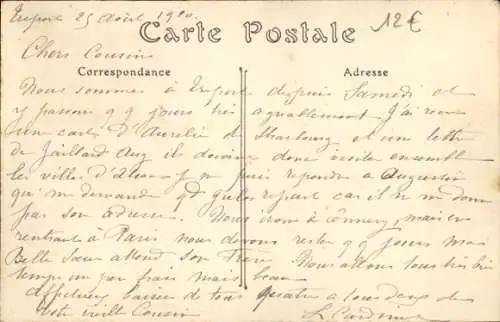 Treport 25 Août 1920
12€
Carte Postale
Chers Cousins
Correspondance
Adresse
Nous sommes à Treport depuis Samedi et
y passons qq jours très agréablement J'ai recu
une carte d'Aurelie de Strasbourg et une lettre
de Jaillard Aug ils doivent donc visiter ensemble
les villes d'Alsace je ne puis repondre à Augustin
qu'il me demande qd qu'il repart car il ne me donne
pas son adresse. Nous irons à mais en
rentrant à Paris nous devons rester qq jours ma
Belle Soeur attend son frère Nous allons tous très bien
temps un peu frais mais beau
Affectueux baisers de tous quatre à tous deux
votre vieille Cousine